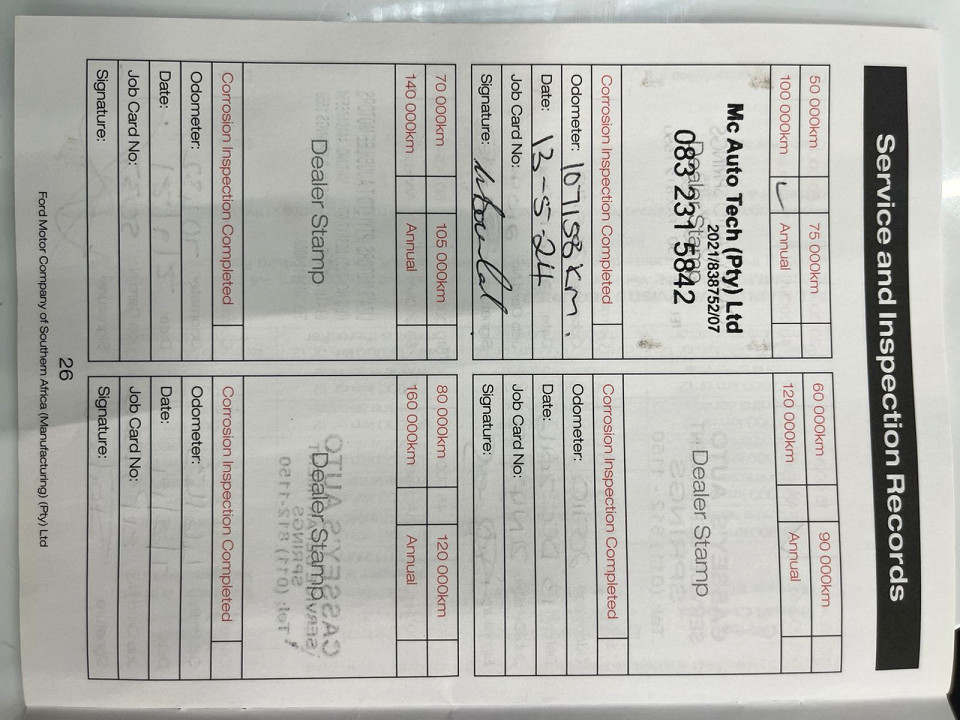 Service and Inspection Records
50 000km 75 000km
100 000km ✓ Annual
Mc Auto Tech (Pty) Ltd
2021/838752/07
Dealer Stamp
083 231 5842
Corrosion Inspection Completed
Odometer: 107158 km.
Date: 13-5-24
Job Card No:
Signature:
60 000km 90 000km
120 000km Annual
Dealer Stamp
Corrosion Inspection Completed
Odometer:
Date:
Job Card No:
Signature:
70 000km 105 000km
140 000km Annual
Dealer Stamp
Corrosion Inspection Completed
Odometer:
Date:
Job Card No:
Signature:
80 000km 120 000km
160 000km Annual
Dealer Stamp
Corrosion Inspection Completed
Odometer:
Date:
Job Card No:
Signature:
26
Ford Motor Company of Southern Africa (Manufacturing) (Pty) Ltd